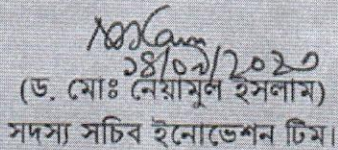 ২৪/০৯/2020
(ড. মোঃ নেয়ামুল ইসলাম)
সদস্য সচিব ইনোভেশন টিম।